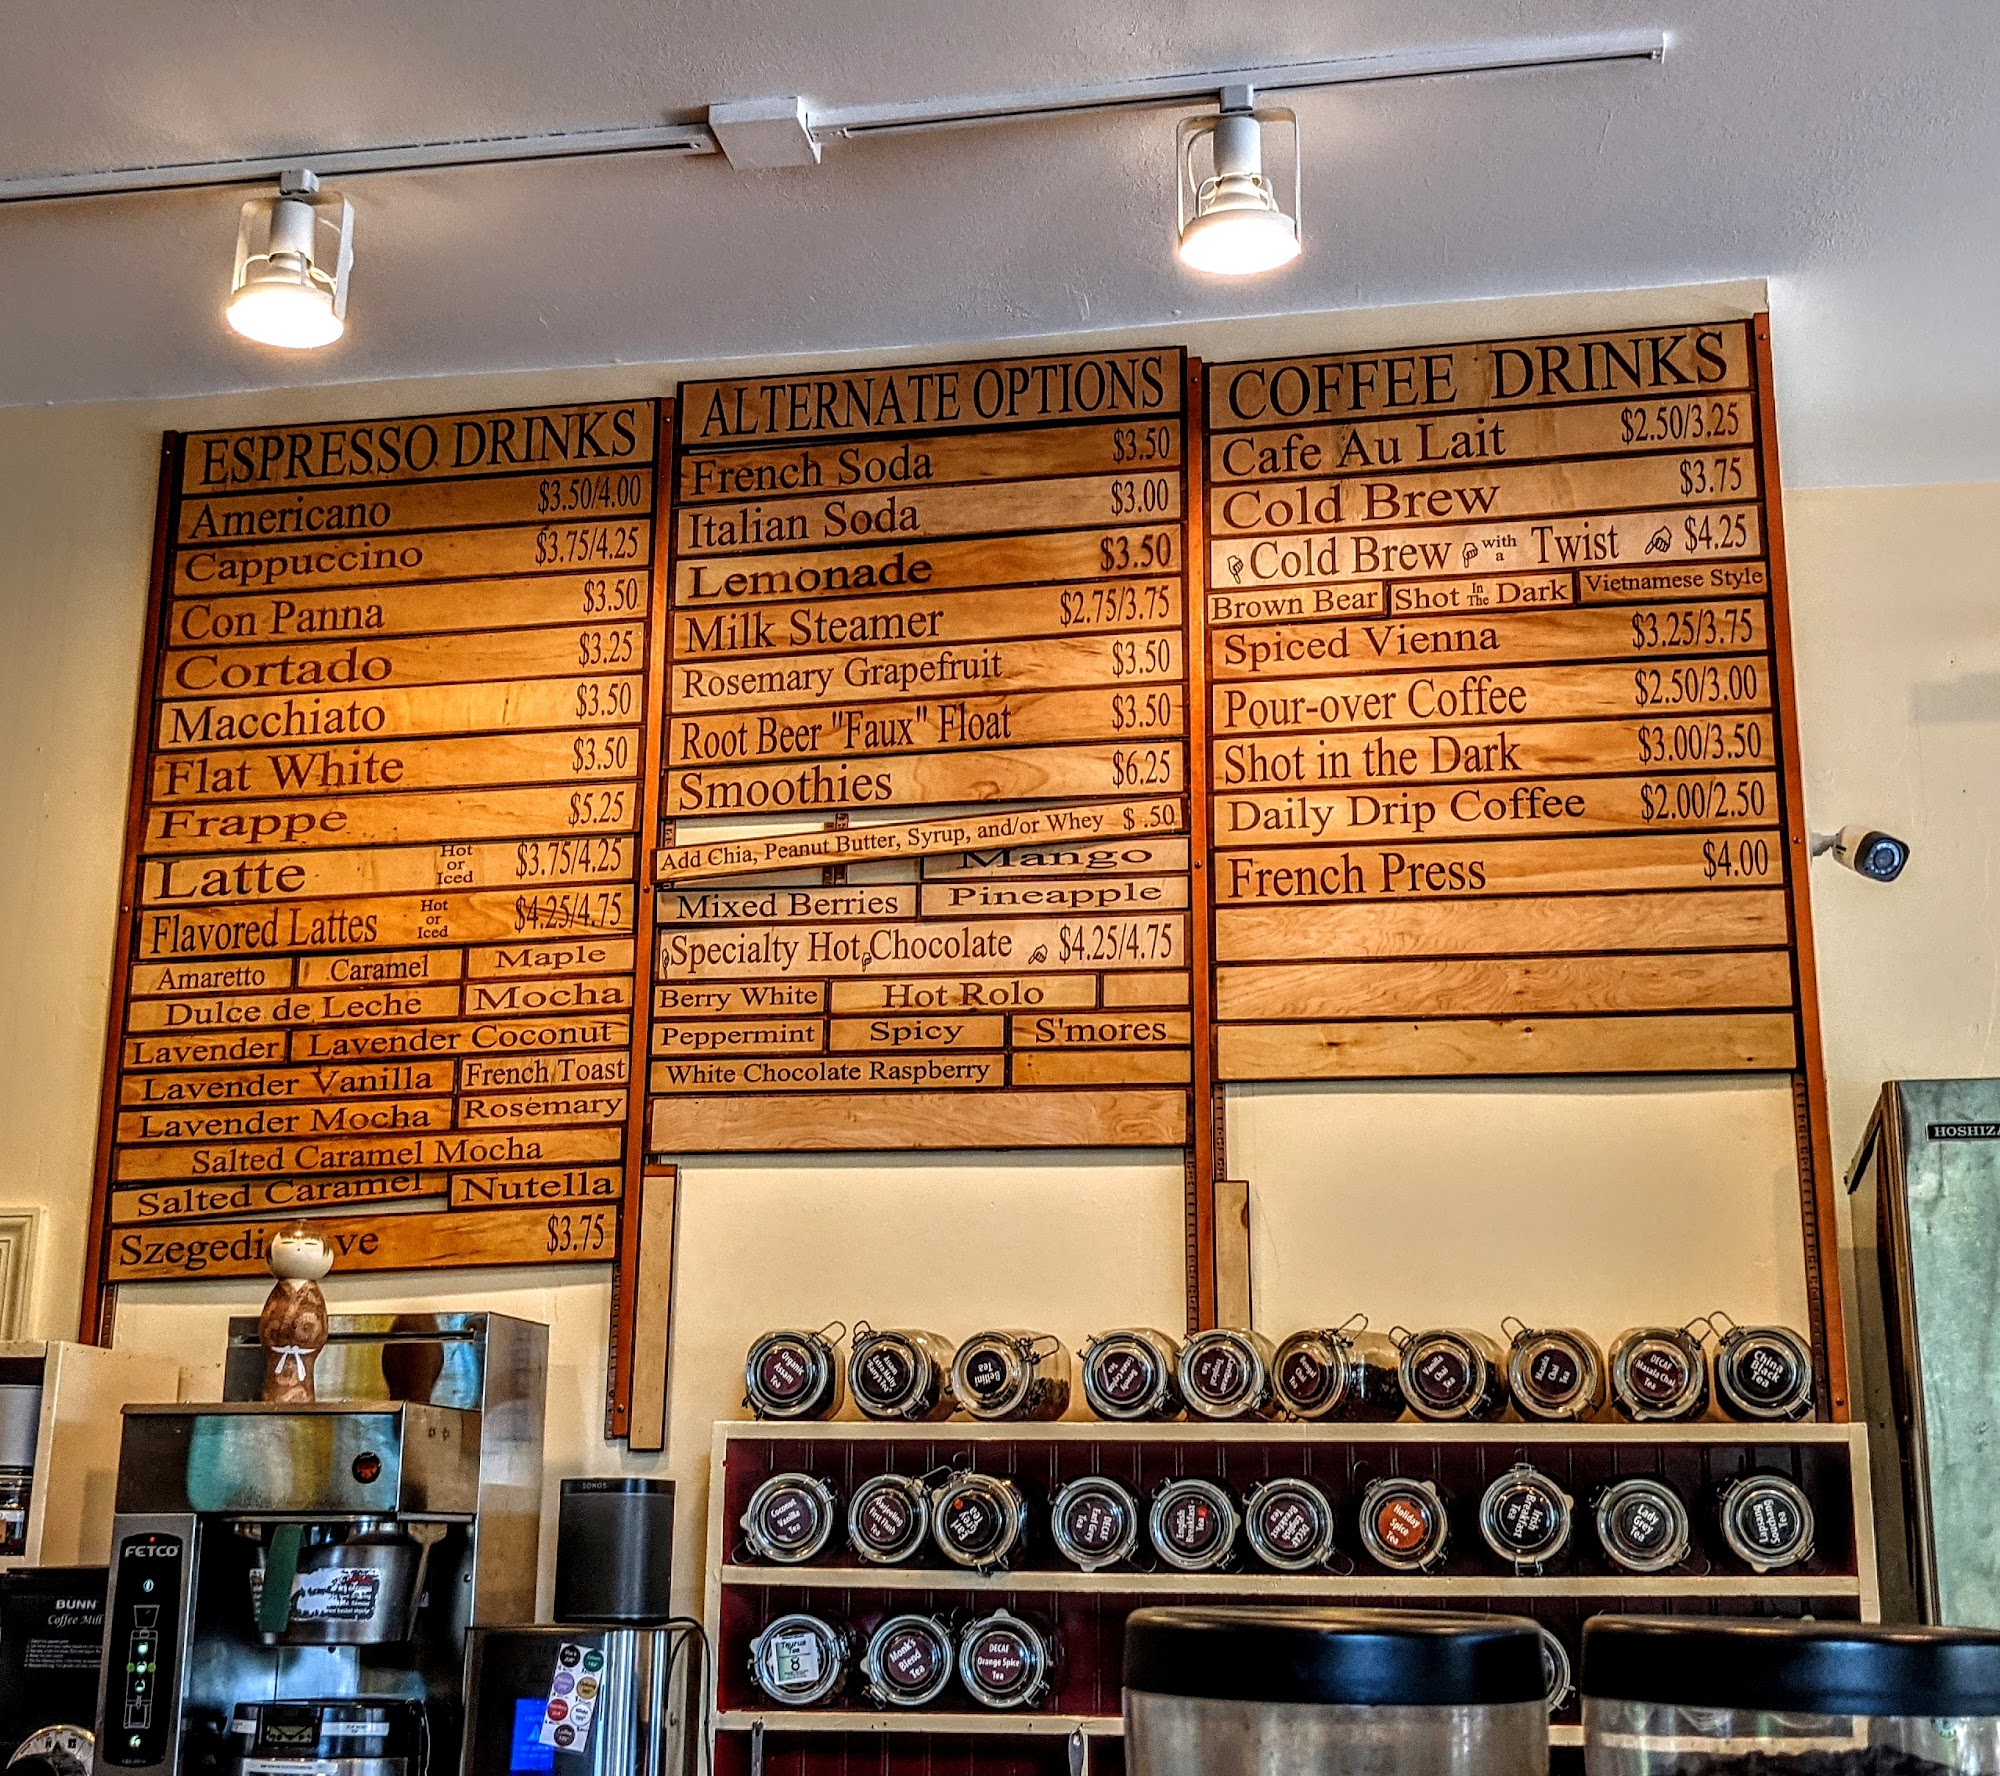 ESPRESSO DRINKS
Americano $3.50/4.00
Cappuccino $3.75/4.25
Con Panna $3.50
Cortado $3.25
Macchiato $3.50
Flat White $3.50
Frappe $5.25
Latte Hot or Iced $3.75/4.25
Flavored Lattes Hot or Iced $4.25/4.75
Amaretto Caramel Maple
Dulce de Leche Mocha
Lavender Lavender Coconut
Lavender Vanilla French Toast
Lavender Mocha Rosemary
Salted Caramel Mocha
Salted Caramel Nutella
$3.75
ALTERNATE OPTIONS
French Soda $3.50
Italian Soda $3.00
Lemonade $3.50
Milk Steamer $2.75/3.75
Rosemary Grapefruit $3.50
Root Beer "Faux" Float $3.50
Smoothies $6.25
Add Chia, Peanut Butter, Syrup, and/or Whey $ .50
Mango
Mixed Berries Pineapple
Specialty Hot Chocolate $4.25/4.75
Berry White Hot Rolo
Peppermint Spicy S'mores
White Chocolate Raspberry
COFFEE DRINKS
Cafe Au Lait $2.50/3.25
Cold Brew $3.75
Cold Brew with a Twist $4.25
Brown Bear Shot In The Dark Vietnamese Style
Spiced Vienna $3.25/3.75
Pour-over Coffee $2.50/3.00
Shot in the Dark $3.00/3.50
Daily Drip Coffee $2.00/2.50
French Press $4.00
Organic Assam Tea
Bellini Tea
Vanilla Chai Tea
Masala Chai Tea
DECAF Masala Chai Tea
China Black Tea
Coconut Vanilla Tea
DECAF Earl Grey Tea
English Breakfast Tea
Holiday Spice Tea
Irish Breakfast Tea
Lady Grey Tea
Lapsang Souchong Tea
Taurus Tea
Monk's Blend Tea
DECAF Orange Spice Tea
SONOS
FETCO
BUNN
Coffee Mill